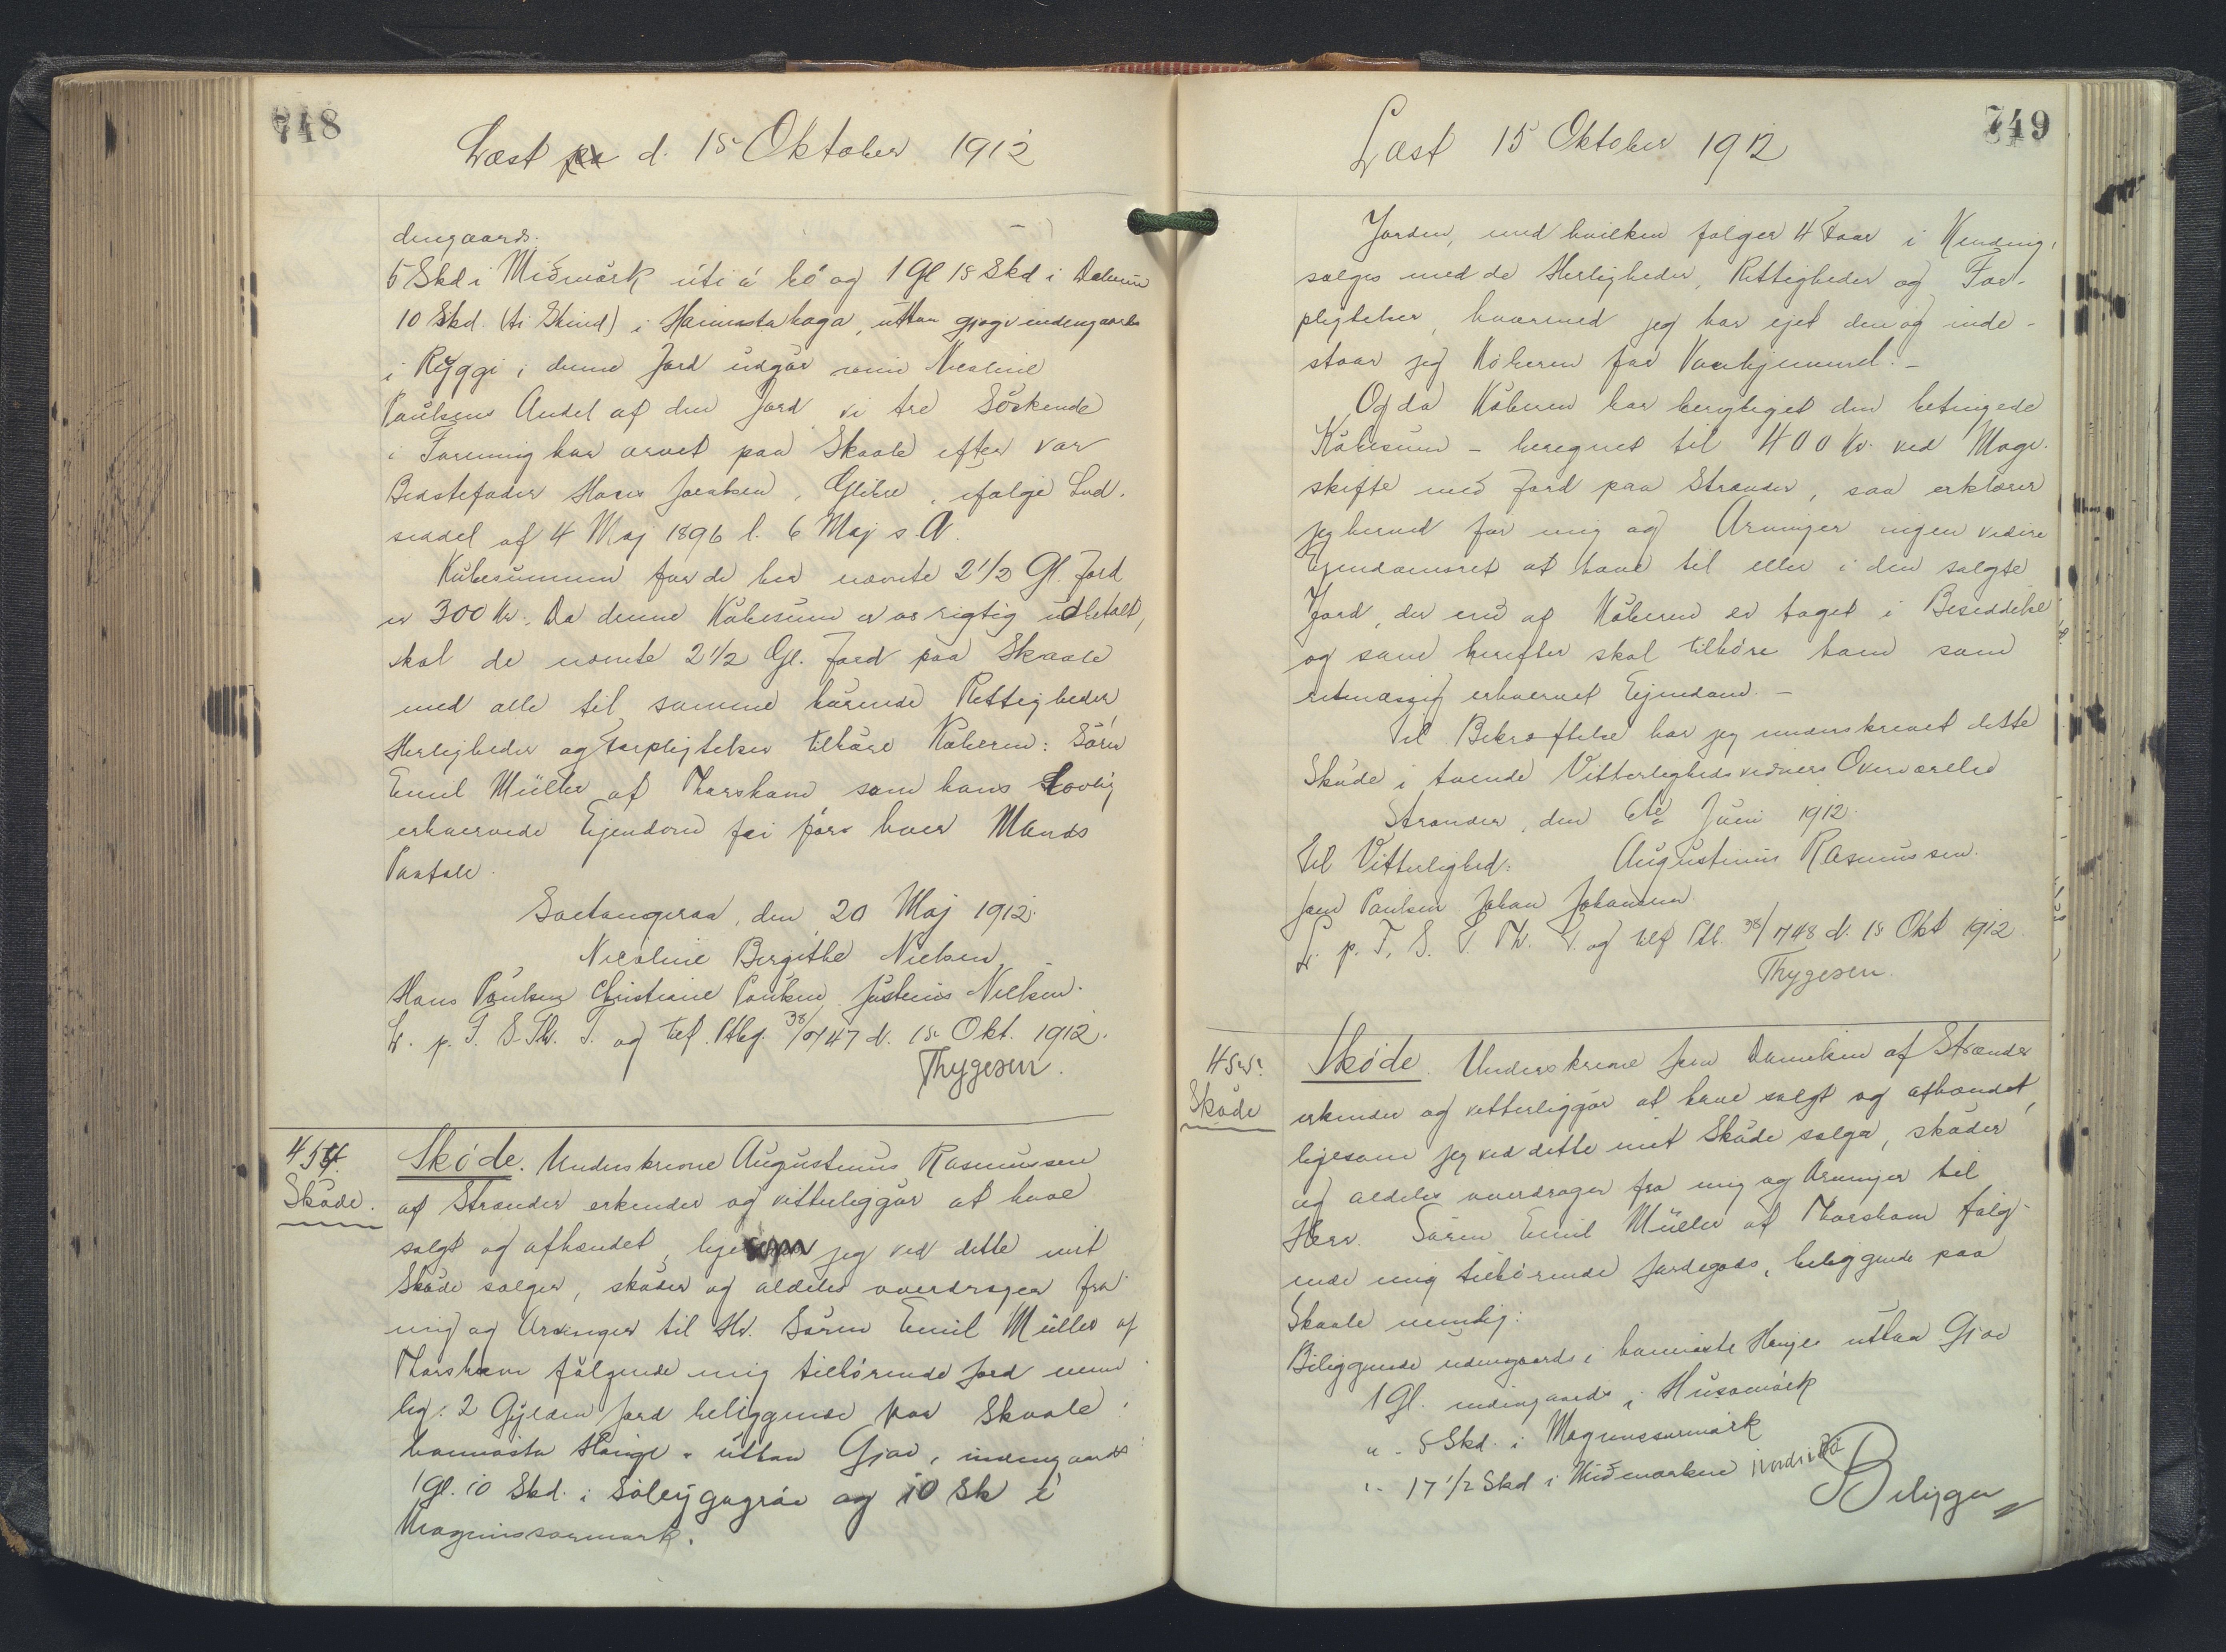 748
Læst d. 15 Oktober 1912
dengaards.
5 Skd i Miðmørk úti á bø og 1 Gl 15 Skd i
10 Skd. (ti Skind) i Hamrastahaga, uttan gjogv indengaards
i Ryggi; denne Jord udgør min Nicoline
Paulsens Andel af den Jord vi tre Söskende
i Forening har arvet paa Skaale efter vor
Bedstefader Hans Jacobsen, Glibre, ifølge Lod-
seddel af 4 Maj 1896 l. 6 Maj s. A.
Købesummen for de her nævnte 2 1/2 Gl. Jord
er 300 Kr. Da denne Købesum er os rigtig udbetalt,
skal de nævnte 2 1/2 Gl. Jord paa Skaale
med alle til samme hörende Rettigheder
Herligheder og Forpligtelser tilhøre Køberen: Sören
Emil Müller af Thorshavn som hans lovlig
erhvervede Ejendom fri for hver Mands
Paatale.
den 20 Maj 1912.
Nicoline Birgithe Nielsen
Hans Paulsen Christiane Paulsen Justinus Nielsen.
L. p. F. S. Th. T. og tilf. Ptbg. 38/747 d. 15 Okt. 1912.
Thygesen.
454.
Skøde.
Skøde. Underskrevne Augustinus Rasmussen
af Strænder erkender og vitterliggør at have
solgt og afhændet, ligesom jeg ved dette mit
Skøde sælger, skøder og aldeles overdrager fra
mig og Arvinger til Hr. Sören Emil Müller af
Thorshavn følgende mig tilhørende Jord nem-
lig: 2 Gylden Jord beliggende paa Skaale i
hamrasta Hauge uttan Gjov, indengaards
1 Gl. 10 Skd. i Söleygagróv og 10 Sk í
Magnussarmørk.
749
Læst 15 Oktober 1912
Jorden, med hvilken følger 4 Faar i Kending,
sælges med de Herligheder, Rettigheder og For-
pligtelser, hvormed jeg har ejet den og inde-
staar jeg Køberen for Vanhjemmel. –
Og da Køberen har berigtiget den betingede
Købesum – beregnet til 400 Kr. ved Mage-
skifte med Jord paa Strænder, saa erklærer
jeg herved for mig og Arvinger ingen videre
Ejendomsret at have til eller i den solgte
Jord, der nu af Køberen er taget i Besiddelse
og som herefter skal tilhöre ham som
retmæssig erhvervet Ejendom. –
Til Bekræftelse har jeg underskrevet dette
Skøde i tvende Vitterlighedsvidners Overværelse
Strænder, den 6te Juni 1912.
Til Vitterlighed: Augustinus Rasmussen.
Joen Poulsen Johan Johannesen
L. p. F. S. T. Th. T. og tilf Ptb. 38/748 d. 15 Okt 1912
Thygesen.
455.
Skøde
Skøde. Underskrevne Joen Danielsen af Strænder
erkender og vitterliggör at have solgt og afhændet,
ligesom jeg ved dette mit Skøde sælger, skøder
og aldeles overdrager fra mig og Arvinger til
Herr. Sören Emil Müller af Thorshavn følg-
ende mig tilhörende Jordegods, beliggende paa
Skaale nemlig:
Beliggende udengaards i hamrasta Hauge uttan Gjov
1 Gl. indengaards i Húsamørk
" - 5 Skd. i Magnussarmørk
" - 17 1/2 Skd i Miðmørkun norduri
Beligger